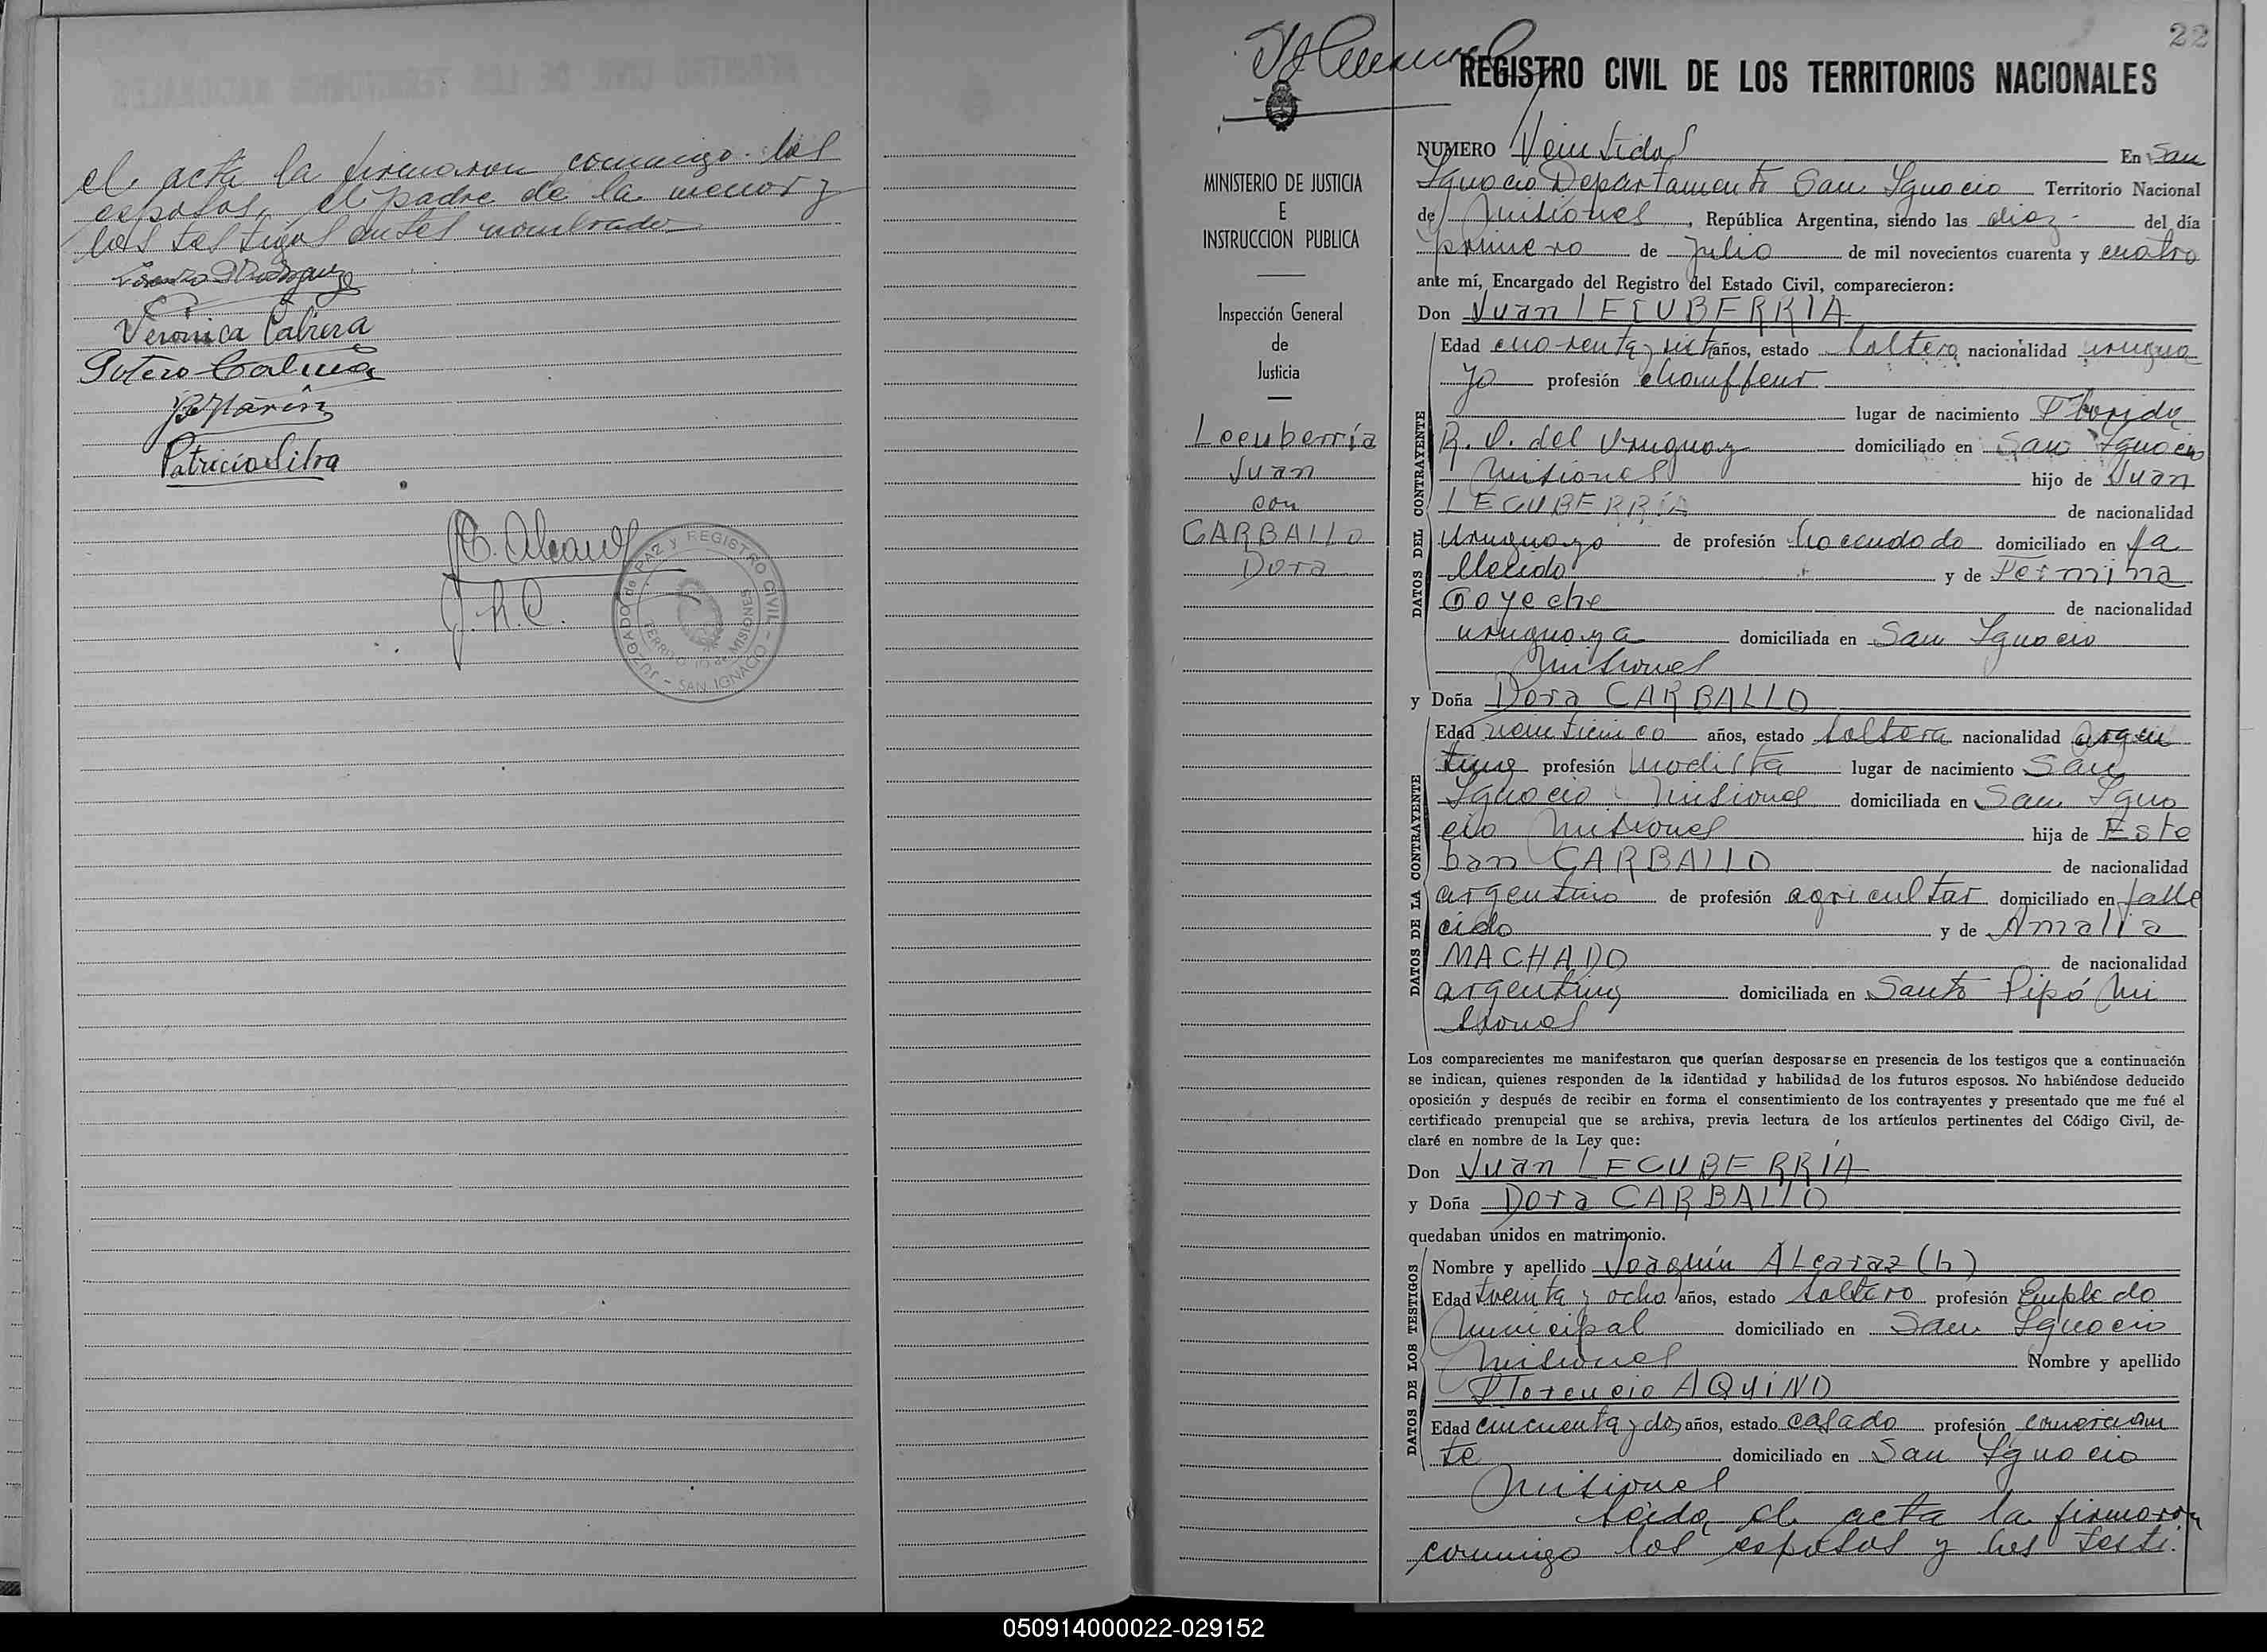 el acta la firmaron conmigo los
esposos, el padre de la menor y
los testigos antes nombrados
Verónica Cabrera
Sotero
B Marín
Patricio Silva
J. Alcaraz
J. R. C.
JUZGADO de PAZ y REGISTRO CIVIL - SAN IGNACIO -
TERRITORIO de MISIONES
22
REGISTRO CIVIL DE LOS TERRITORIOS NACIONALES
MINISTERIO DE JUSTICIA
E
INSTRUCCION PUBLICA
Inspección General
de
Justicia
Lecuberría
Juan
con
CARBALLO
Dora
NUMERO Veintidos En San
Ignacio Departamento San Ignacio Territorio Nacional
de Misiones, República Argentina, siendo las diez del día
primero de julio de mil novecientos cuarenta y cuatro
ante mí, Encargado del Registro del Estado Civil, comparecieron:
Don Juan LECUBERRIA
DATOS DEL CONTRAYENTE
Edad cuarenta y siete años, estado soltero nacionalidad urugua
yo profesión chouffeur
lugar de nacimiento Florida
R. O. del Uruguay domiciliado en San Ignacio
Misiones hijo de Juan
LECUBERRÍA de nacionalidad
Uruguayo de profesión hacendado domiciliado en fa
llecido y de Fermina
Goyeche de nacionalidad
uruguaya domiciliada en San Ignacio
Misiones
y Doña Dora CARBALLO
DATOS DE LA CONTRAYENTE
Edad veinticinco años, estado soltera nacionalidad argen
tina profesión modista lugar de nacimiento San
Ignacio Misiones domiciliada en San Igna
cio Misiones hija de Este
ban CARBALLO de nacionalidad
argentino de profesión agricultor domiciliado en falle
cido y de Amalia
MACHADO de nacionalidad
argentina domiciliada en Santo Pipó Mi
siones
Los comparecientes me manifestaron que querían desposarse en presencia de los testigos que a continuación
se indican, quienes responden de la identidad y habilidad de los futuros esposos. No habiéndose deducido
oposición y después de recibir en forma el consentimiento de los contrayentes y presentado que me fué el
certificado prenupcial que se archiva, previa lectura de los artículos pertinentes del Código Civil, de-
claré en nombre de la Ley que:
Don Juan LECUBERRÍA
y Doña Dora CARBALLO
quedaban unidos en matrimonio.
DATOS DE LOS TESTIGOS
Nombre y apellido Joaquín ALcaraz (h)
Edad treinta y ocho años, estado soltero profesión Empleado
Municipal domiciliado en San Ignacio
Misiones Nombre y apellido
Florencio AQUINO
Edad cincuenta y dos años, estado casado profesión comercian
te domiciliado en San Ignacio
Misiones
Leída el acta la firmaron
conmigo los esposos y los testi.
050914000022-029152